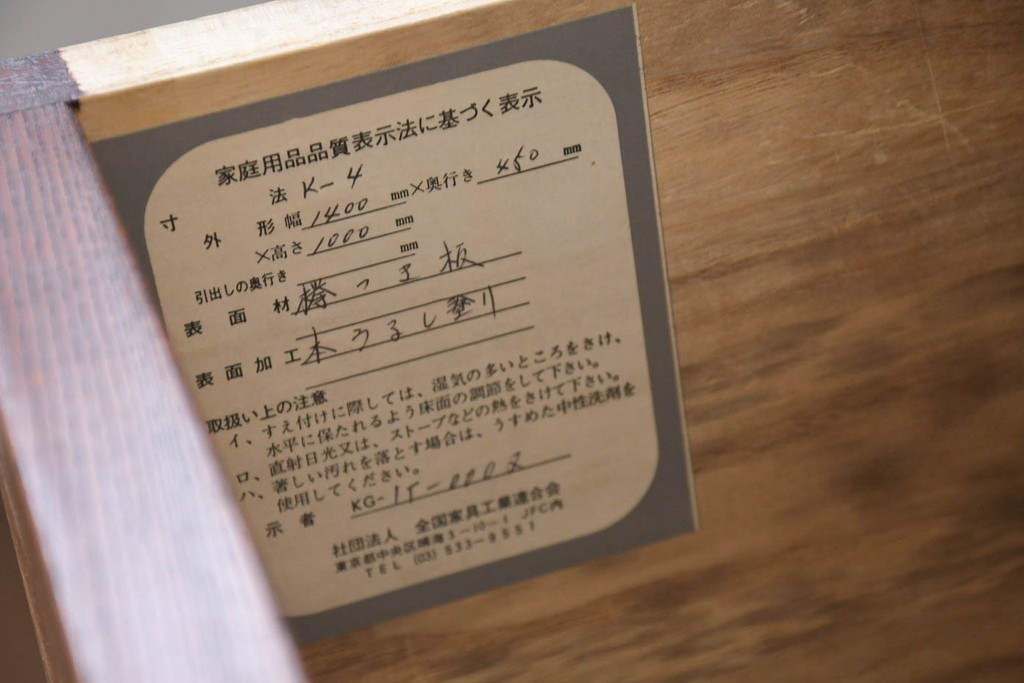 家庭用品品質表示法に基づく表示
寸 法 K-4
外 形 幅 1400 mm×奥行き 450 mm
×高さ 1000 mm
引出しの奥行き mm
表 面 材 欅つき板
表 面 加 工 本うるし塗り
取扱い上の注意
イ、すえ付けに際しては、湿気の多いところをさけ、
水平に保たれるよう床面の調節をして下さい。
ロ、直射日光又は、ストーブなどの熱をさけて下さい。
ハ、著しい汚れを落とす場合は、うすめた中性洗剤を
使用してください。
示 者 KG-15-0002
社団法人 全国家具工業連合会
東京都中央区晴海3-10-1 JFC内
TEL (03) 533-9551